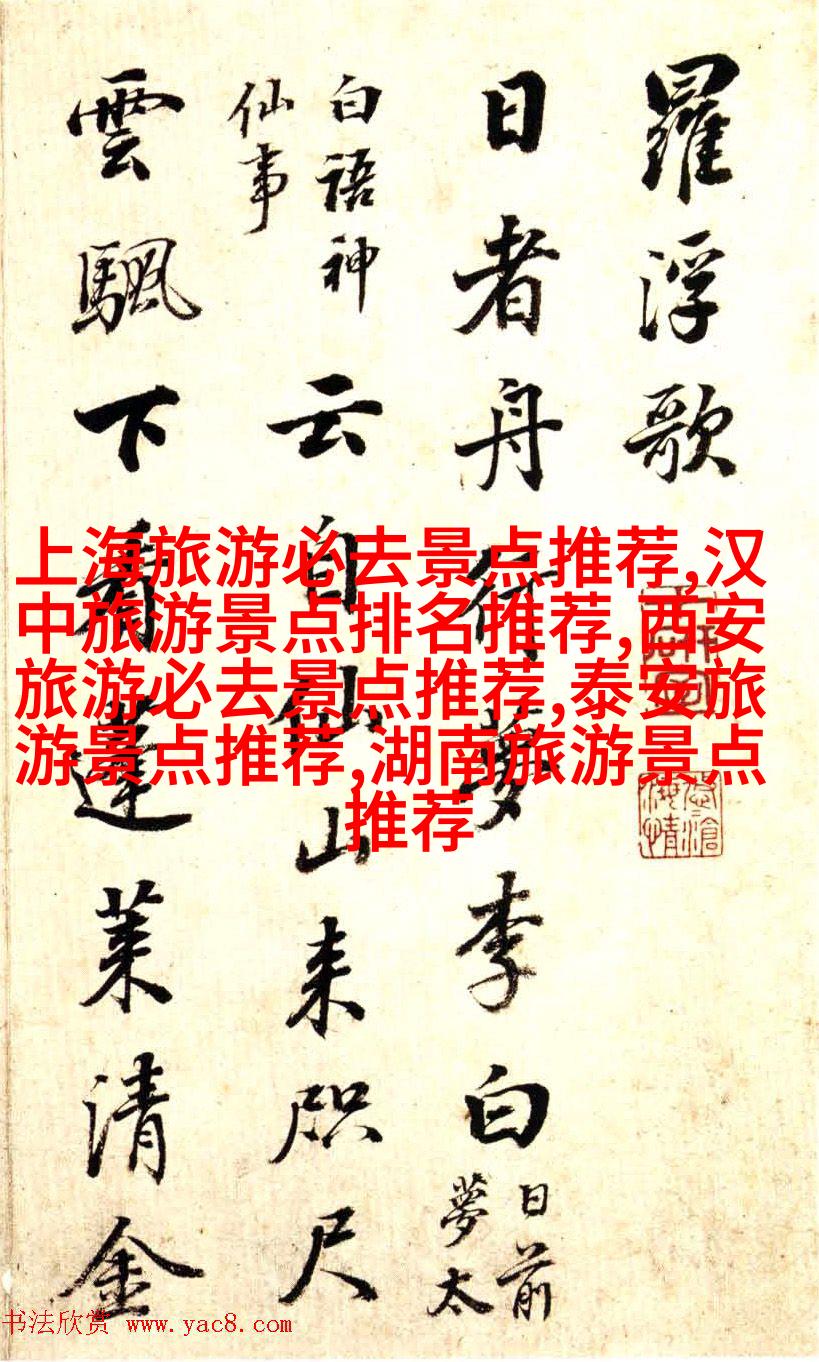 羅浮歌
日者舟行夢李白
日前
夢太
白語神
仙事
云自仙山来咫尺
雲颿下看蓬莱清金
上海旅游必去景点推荐,汉
中旅游景点排名推荐,西安
旅游必去景点推荐,泰安旅
游景点推荐,湖南旅游景点
推荐
书法欣赏 www.yac8.com